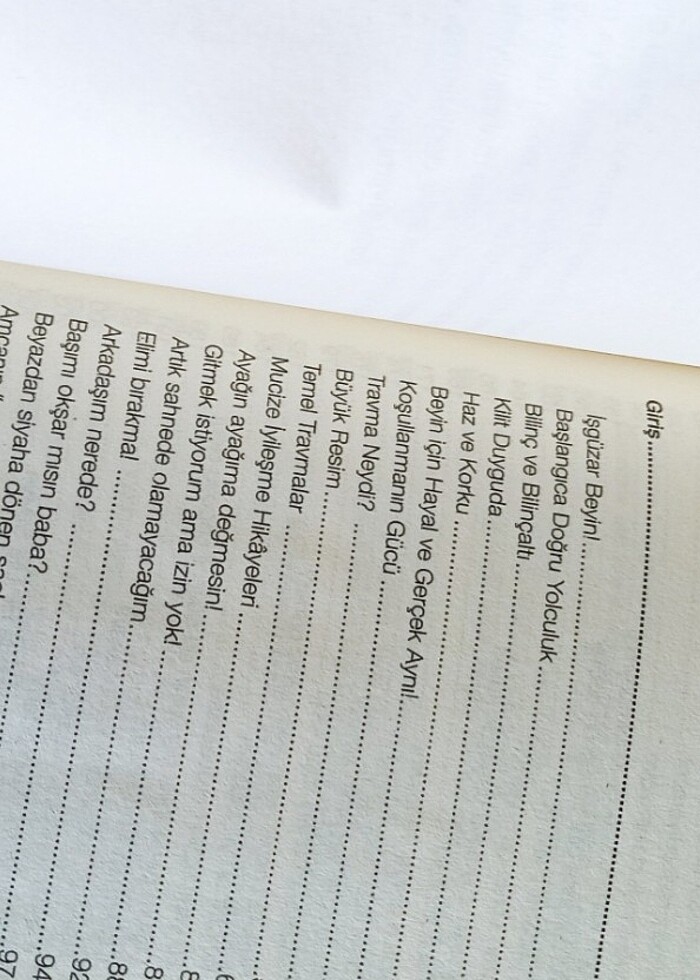 Giriş
İşgüzar Beyin!
Başlangıca Doğru Yolculuk
Bilinç ve Bilinçaltı
Kilit Duyguda
Haz ve Korku
Beyin için Hayal ve Gerçek Aynı!
Koşullanmanın Gücü
Travma Neydi?
Büyük Resim
Temel Travmalar
Mucize İyileşme Hikâyeleri
Ayağın ayağıma değmesin!
Gitmek istiyorum ama izin yok!
Artık sahnede olamayacağım
Elimi bırakma! 88
Arkadaşım nerede? 92
Başımı okşar mısın baba? 94
Beyazdan siyaha dönen 97